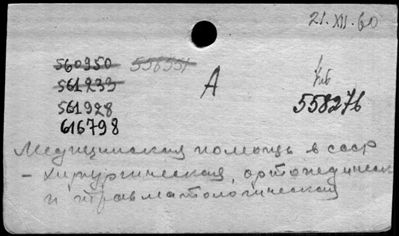 21.XII.60
560950 558551
561233 А
561928 558276
616798
Медицинская помощь в СССР
- хирургическая, ортопедическ
и травматологическая